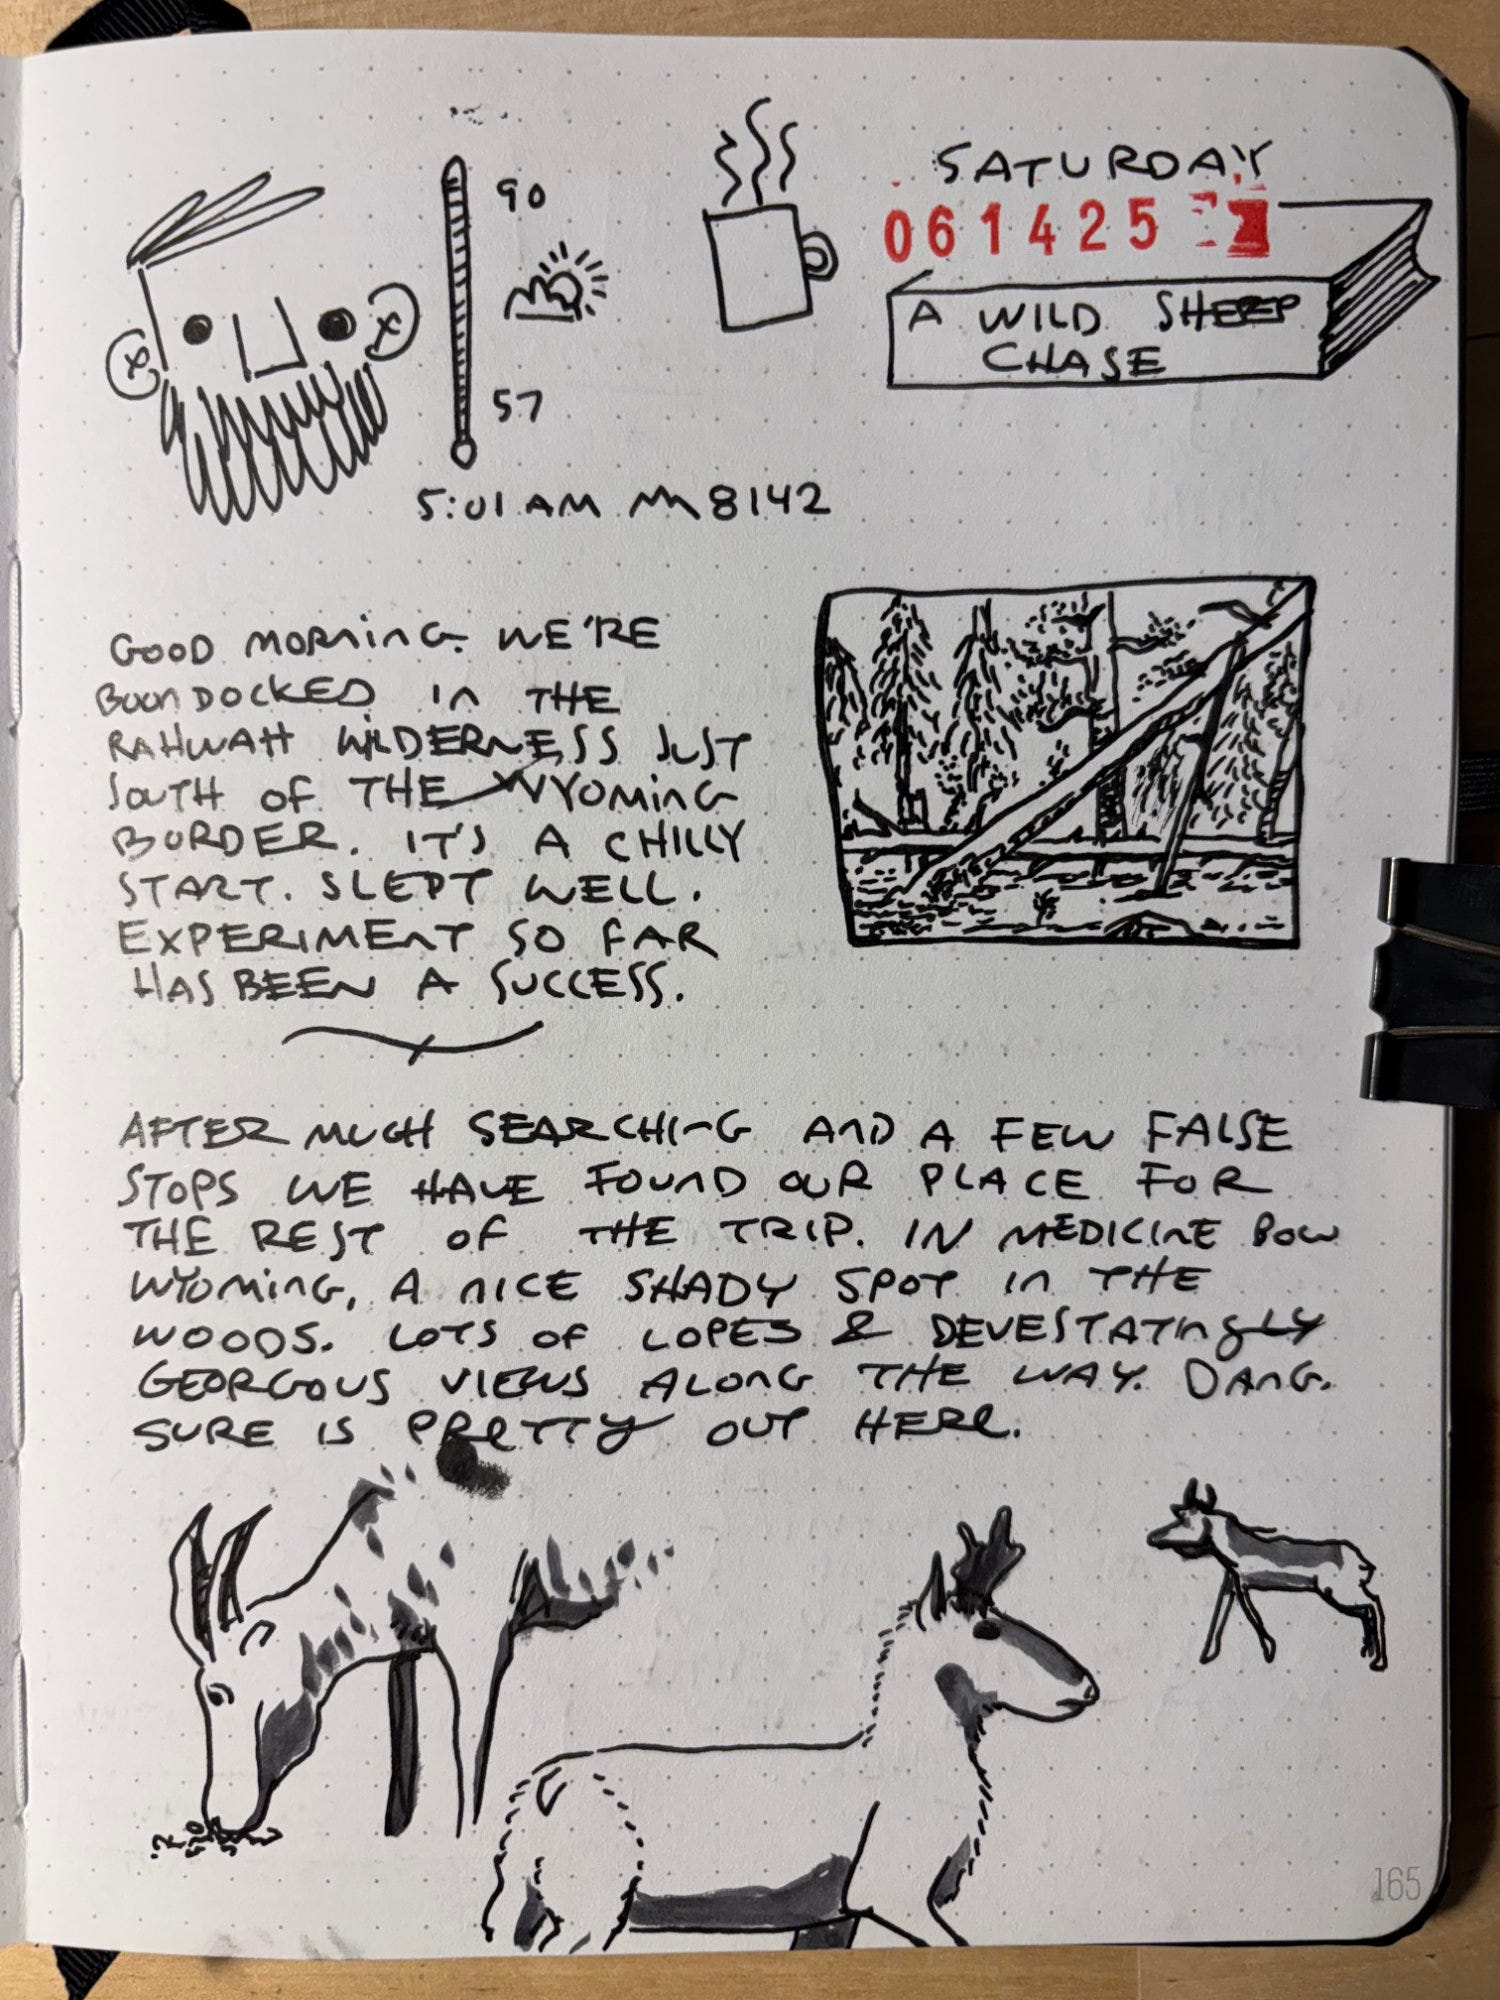 SATURDAY
061425
90
A WILD SHEEP
CHASE
57
5:01 AM 8142
GOOD MORNING. WE'RE
BOONDOCKED IN THE
RAHWAH WILDERNESS JUST
SOUTH OF THE WYOMING
BORDER. IT'S A CHILLY
START. SLEPT WELL.
EXPERIMENT SO FAR
HAS BEEN A SUCCESS.
AFTER MUCH SEARCHING AND A FEW FALSE
STOPS WE HAVE FOUND OUR PLACE FOR
THE REST OF THE TRIP. IN MEDICINE BOW
WYOMING, A NICE SHADY SPOT IN THE
WOODS. LOTS OF LOPES & DEVESTATINGLY
GEORGOUS VIEWS ALONG THE WAY. DANG.
SURE IS PRETTY OUT HERE.
165